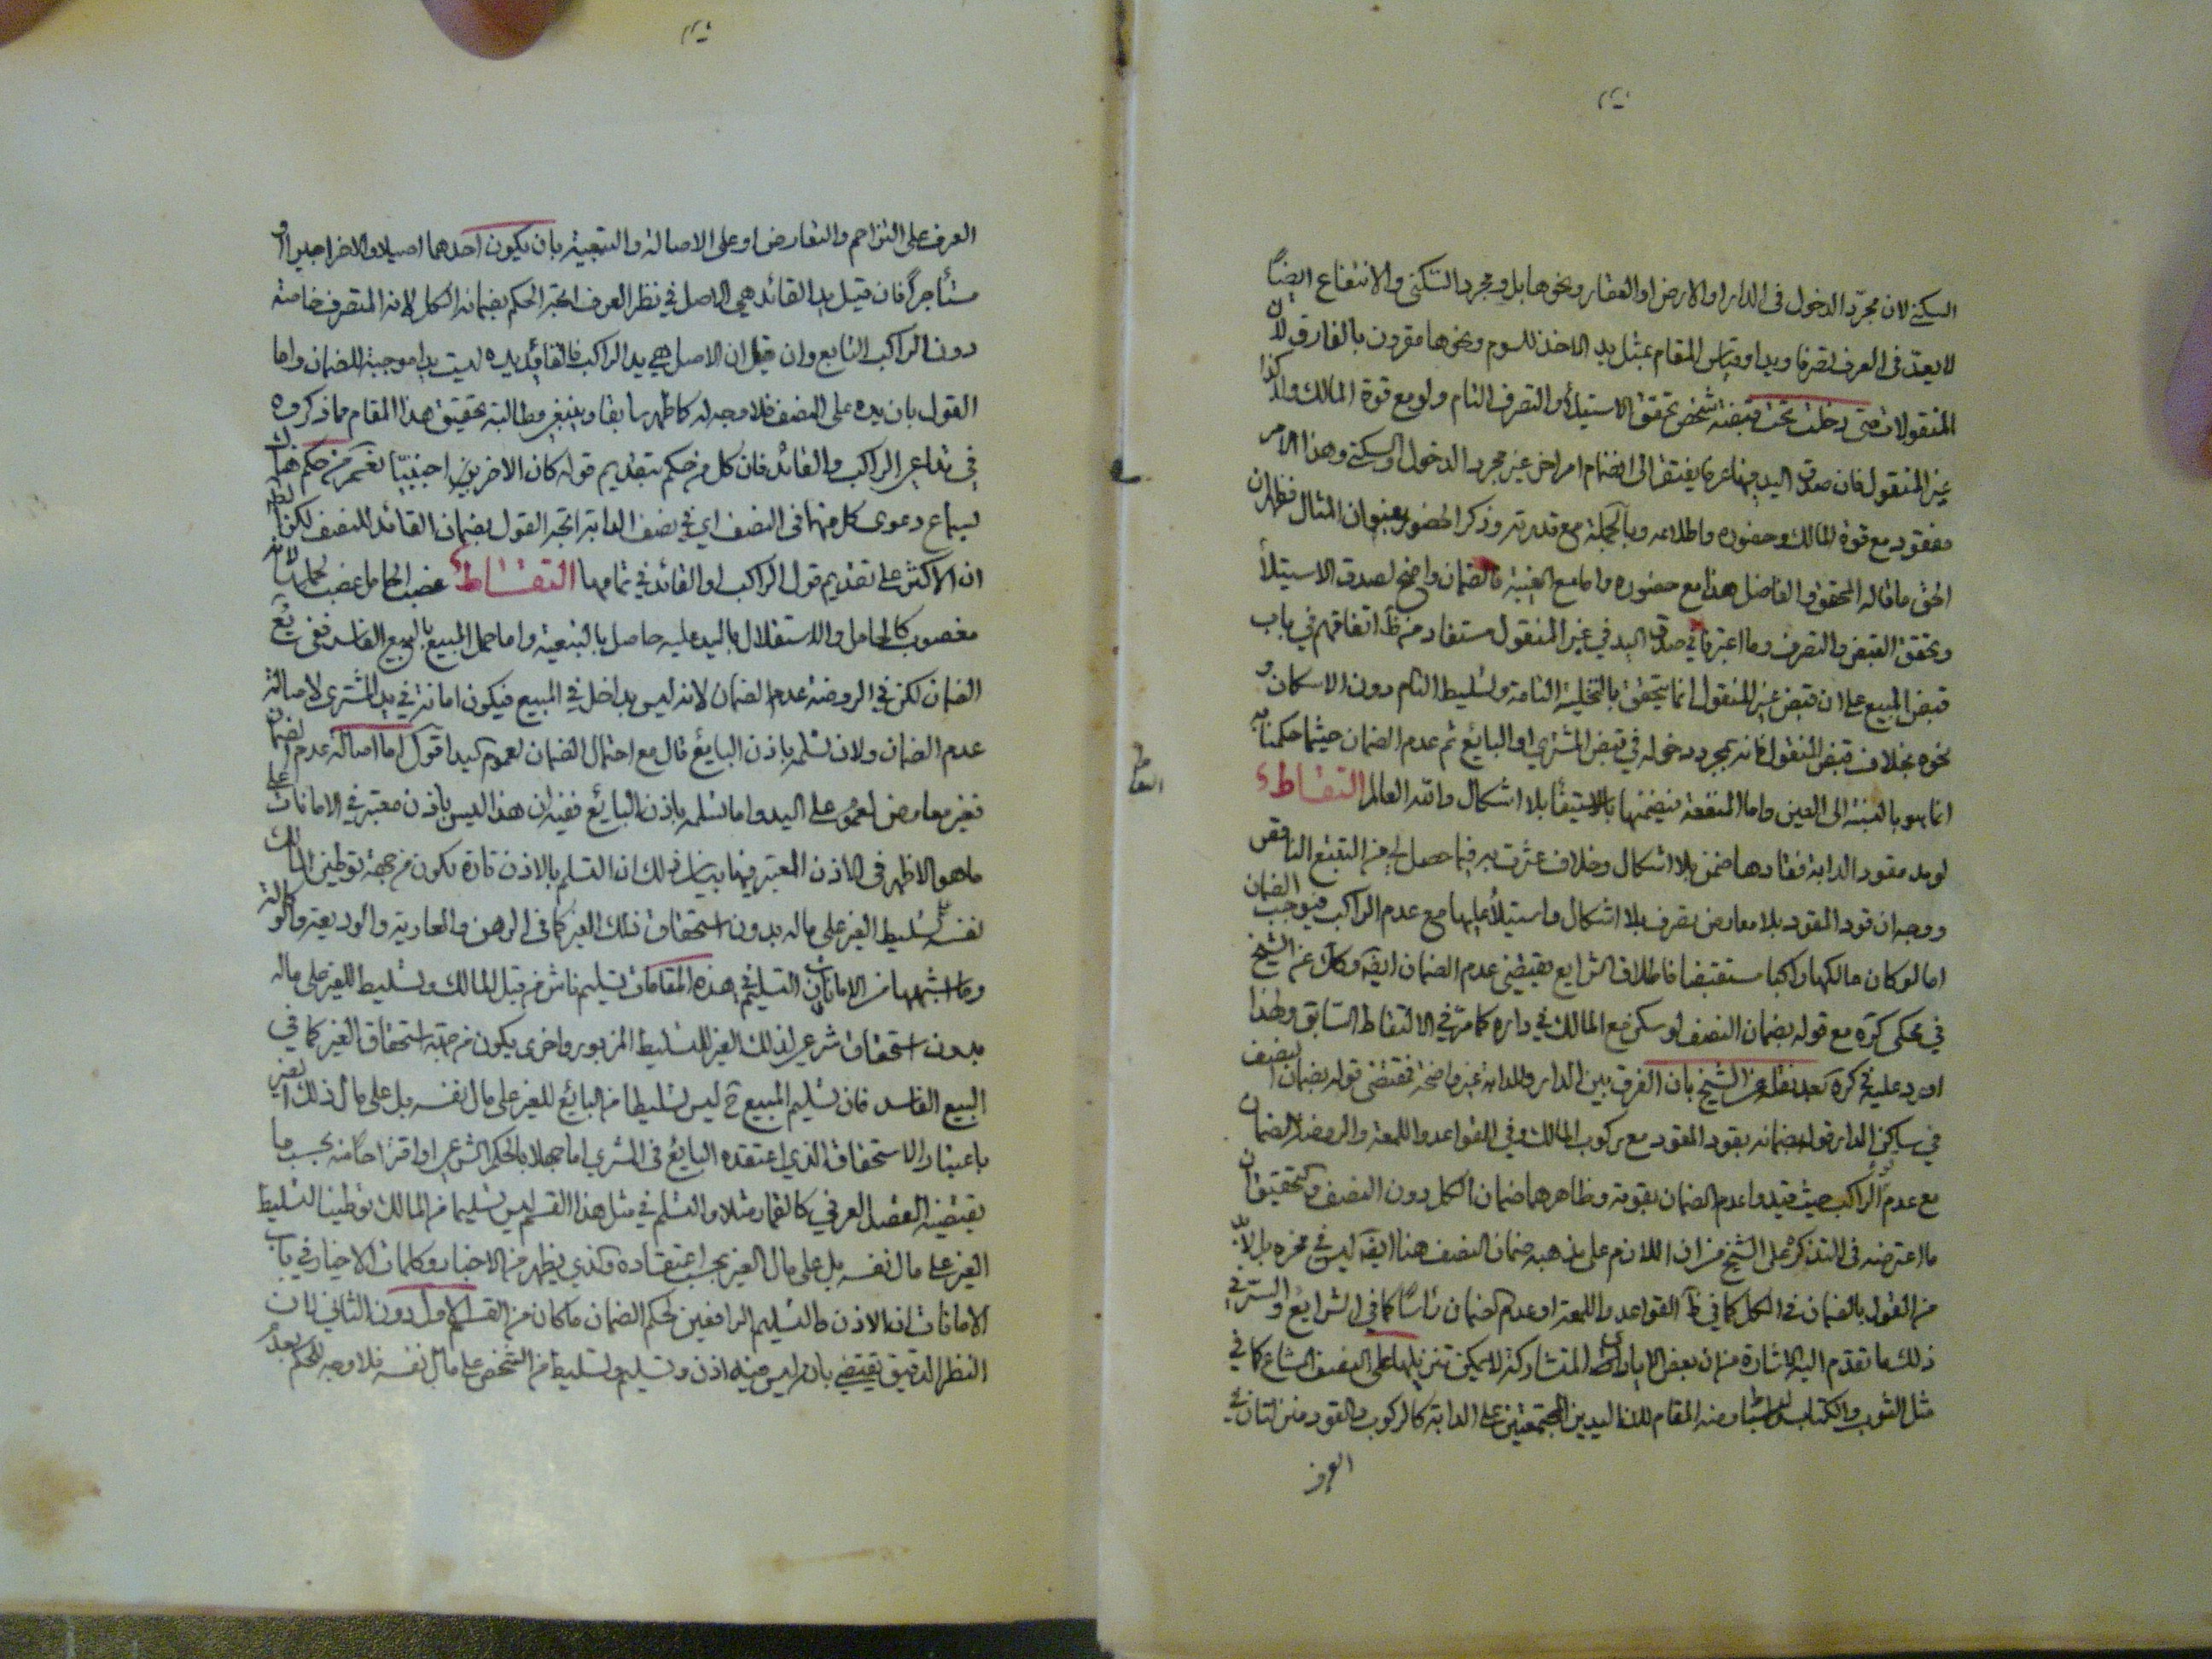 السكنى لان مجرّد الدخول فى الدار او الارض او العقار ونحوها بل ومجرد السكنى والانتفاع ايضاً
لا يعدّ فى العرف تصرفا ويدا وقياس المقام بمثل يد الاخذ للسوم ونحوها مقرون بالفارق لان
المنقولات متى دخلت تحت قبضة شخص تحقق الاستيلاء والتصرف التام ولو مع قوة المالك ولا كذا
غير المنقول فان صدق اليد فيها عرفا يفتقر الى انضمام امر اخر غير مجرد الدخول او السكنى وهذا الامر
مفقود مع قوة المالك وحضوره واطلاعه وبالجملة مع قدرته وذكر الحضور بعنوان المثال فظهر ان
الحق ما قاله المحقق والفاضل هذا مع حضوره واما مع الغيبة فالضمان واضح لصدق الاستيلاء
وتحقق القبض والتصرف وما اعتبرنا فى صدق اليد في غير المنقول مستفاد من ظ اتفاقهم في باب
قبض المبيع على ان قبض غير المنقول انما يتحقق بالتخلية التامة وتسليط التام دون الاسكان و
نحوه بخلاف قبض المنقول فانه بمجرد دخوله في قبض المشتري او البائع ثم عدم الضمان حيثما حكمنا به
انما هو بالنسبة الى العين واما المنفعة فيضمنها بالاستيفاء بلا اشكال والله العالم التقاط
لو مد مقود الدابة فقادها ضمن بلا اشكال وخلاف عثرت به فيما حصل لى من التتبع الناقص
ووجه ان قود المقود بلا معارض تصرف بلا اشكال واستيلاء عليها مع عدم الراكب فيوجب الضمان
اما لو كان مالكها راكبا مستقبضا فاطلاق الشرايع يقتضي عدم الضمان ايضه وكك عن الشيخ
في محكى كره مع قوله بضمان النصف لو سكن مع المالك في داره كما مرّ في الالتقاط السابق ولهذا
اورد عليه في كره بعد نقله عن الشيخ بان الفرق بين الدار والدابة غير واضحة فمقتضى قوله بضمان النصف
في ساكن الدار قوله بضمانه بقود المقود مع ركوب المالك وفي القواعد واللمعة والروضة الضمان
مع عدم قوة الراكب حيث قيدوا عدم الضمان بقوته وظاهرهما ضمان الكل دون النصف والتحقيق ان
ما اعترضه فى التذكرة على الشيخ من ان اللازم على مذهبه ضمان النصف هنا ايضه ليس في محزه بل لا بدّ
من القول بالضمان فى الكل كما في ظ القواعد واللمعة او عدم الضمان راسا كما في الشرايع والسر في
ذلك ما تقدم اليه الاشارة من ان بعض الايادى المتشاركة لا يمكن تنزيلها على النصف المشاع كما في
مثل الثوب والكتاب وما ضاهاه منه المقام لان اليدين المجتمعين على الدابة كالركوب والقود منزلتان في
العرف
التقاط
العرف على التزاحم والتعارض او على الاصالة والتبعية بان يكون احدهما اصيلا والاخر اجيرا او
مستأجراً فان قيل يد القائد هي الاصل في نظر العرف اتجه الحكم بضمانه الكل لانه المتصرف خاصة
دون الراكب التابع وان قيل ان الاصل هي يد الراكب فالقائد يده ليست يدا موجبة للضمان واما
القول بان يده على النصف فلا وجه له كما ظهر سابقا وينبغي مطالبة تحقيق هذا المقام مما ذكروه
في تداعى الراكب والقائد فان كل من حكم بتقديم قوله كان الاخر اجنبيّا نعم من حكم هناك
بسماع دعوى كل منهما فى النصف اي في نصف الدابة اتجه القول بضمان القائد للنصف لكن الظ
ان الاكثر على تقديم قول الراكب او القائد في تمامها التقاط غصب الحامل غصب لحملها لانه
مغصوب كالحامل والاستقلال باليد عليه حاصل بالتبعية واما حمل المبيع بالبيع الفاسد ففى يع
الضمان لكن في الروضة عدم الضمان لانه ليس بداخل في المبيع فيكون امانة في يد المشترى لاصالة
عدم الضمان ولان تسلمه باذن البايع قال مع احتمال الضمان لعموم كيد اقول اما اصالة عدم الضمان
فغير معارض لعموم على اليد واما تسلمه باذن البايع ففيه ان هذا ليس باذن معتبر في الامانات على
ما هو الاظهر فى الاذن المعتبر فيها بيان ذلك ان التسلم بالاذن تارة يكون من جهة توطين المالك
نفسه على تسليط الغير على ماله بدون استحقاق ذلك الغير كما فى الرهن والعارية والوديعة والوكالة
وما اشبهها من الامانات فان التسليم فى هذه المقامات تسليم ناش من قبل المالك وتسليط للغير على ماله
بدون استحقاق شرعى لذلك الغير للتسليط المزبور واخرى يكون من جهة استحقاق الغير كما في
البيع الفاسد فان تسليم المبيع ح ليس تسليطا من البائع للغير على مال نفسه بل على مال ذلك الغير
باعتبار الاستحقاق الذي اعتقده البايع فى المشتري اما جهلا بالحكم الشرعى او اقتراحا منه بحسب ما
يقتضيه الفضل العرفي كالقمار مثلا والتسلم في مثل هذا القسم ليس تسليما من المالك توطينا لتسليط
الغير على مال نفسه بل على مال الغير بحسب اعتقاده والذي يظهر من الاخبار وكلمات الاخيار في باب
الامانات ان الاذن والتسليم الرافعين لحكم الضمان ما كان من القسم الاول دون الثاني لان
النظر الدقيق يقتضي بان ليس فيه اذن وتسليم وتسليط من الشخص على مال نفسه فلا وجه للحكم بعدم